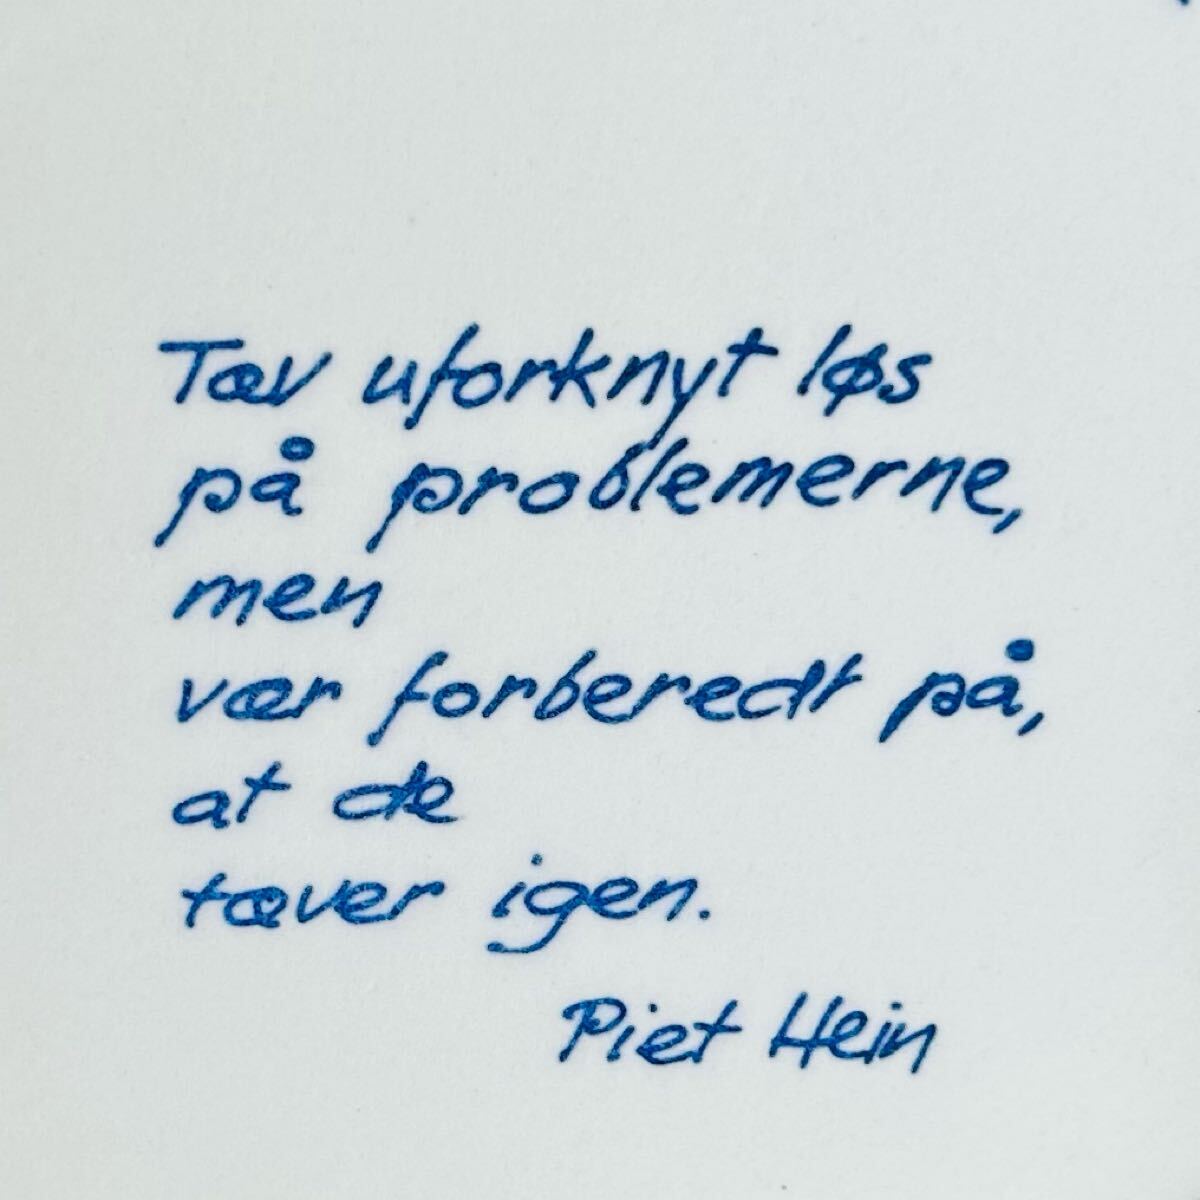 Tæv uforknyt løs
på problemerne,
men
vær forberedt på,
at de
tæver igen.
Piet Hein